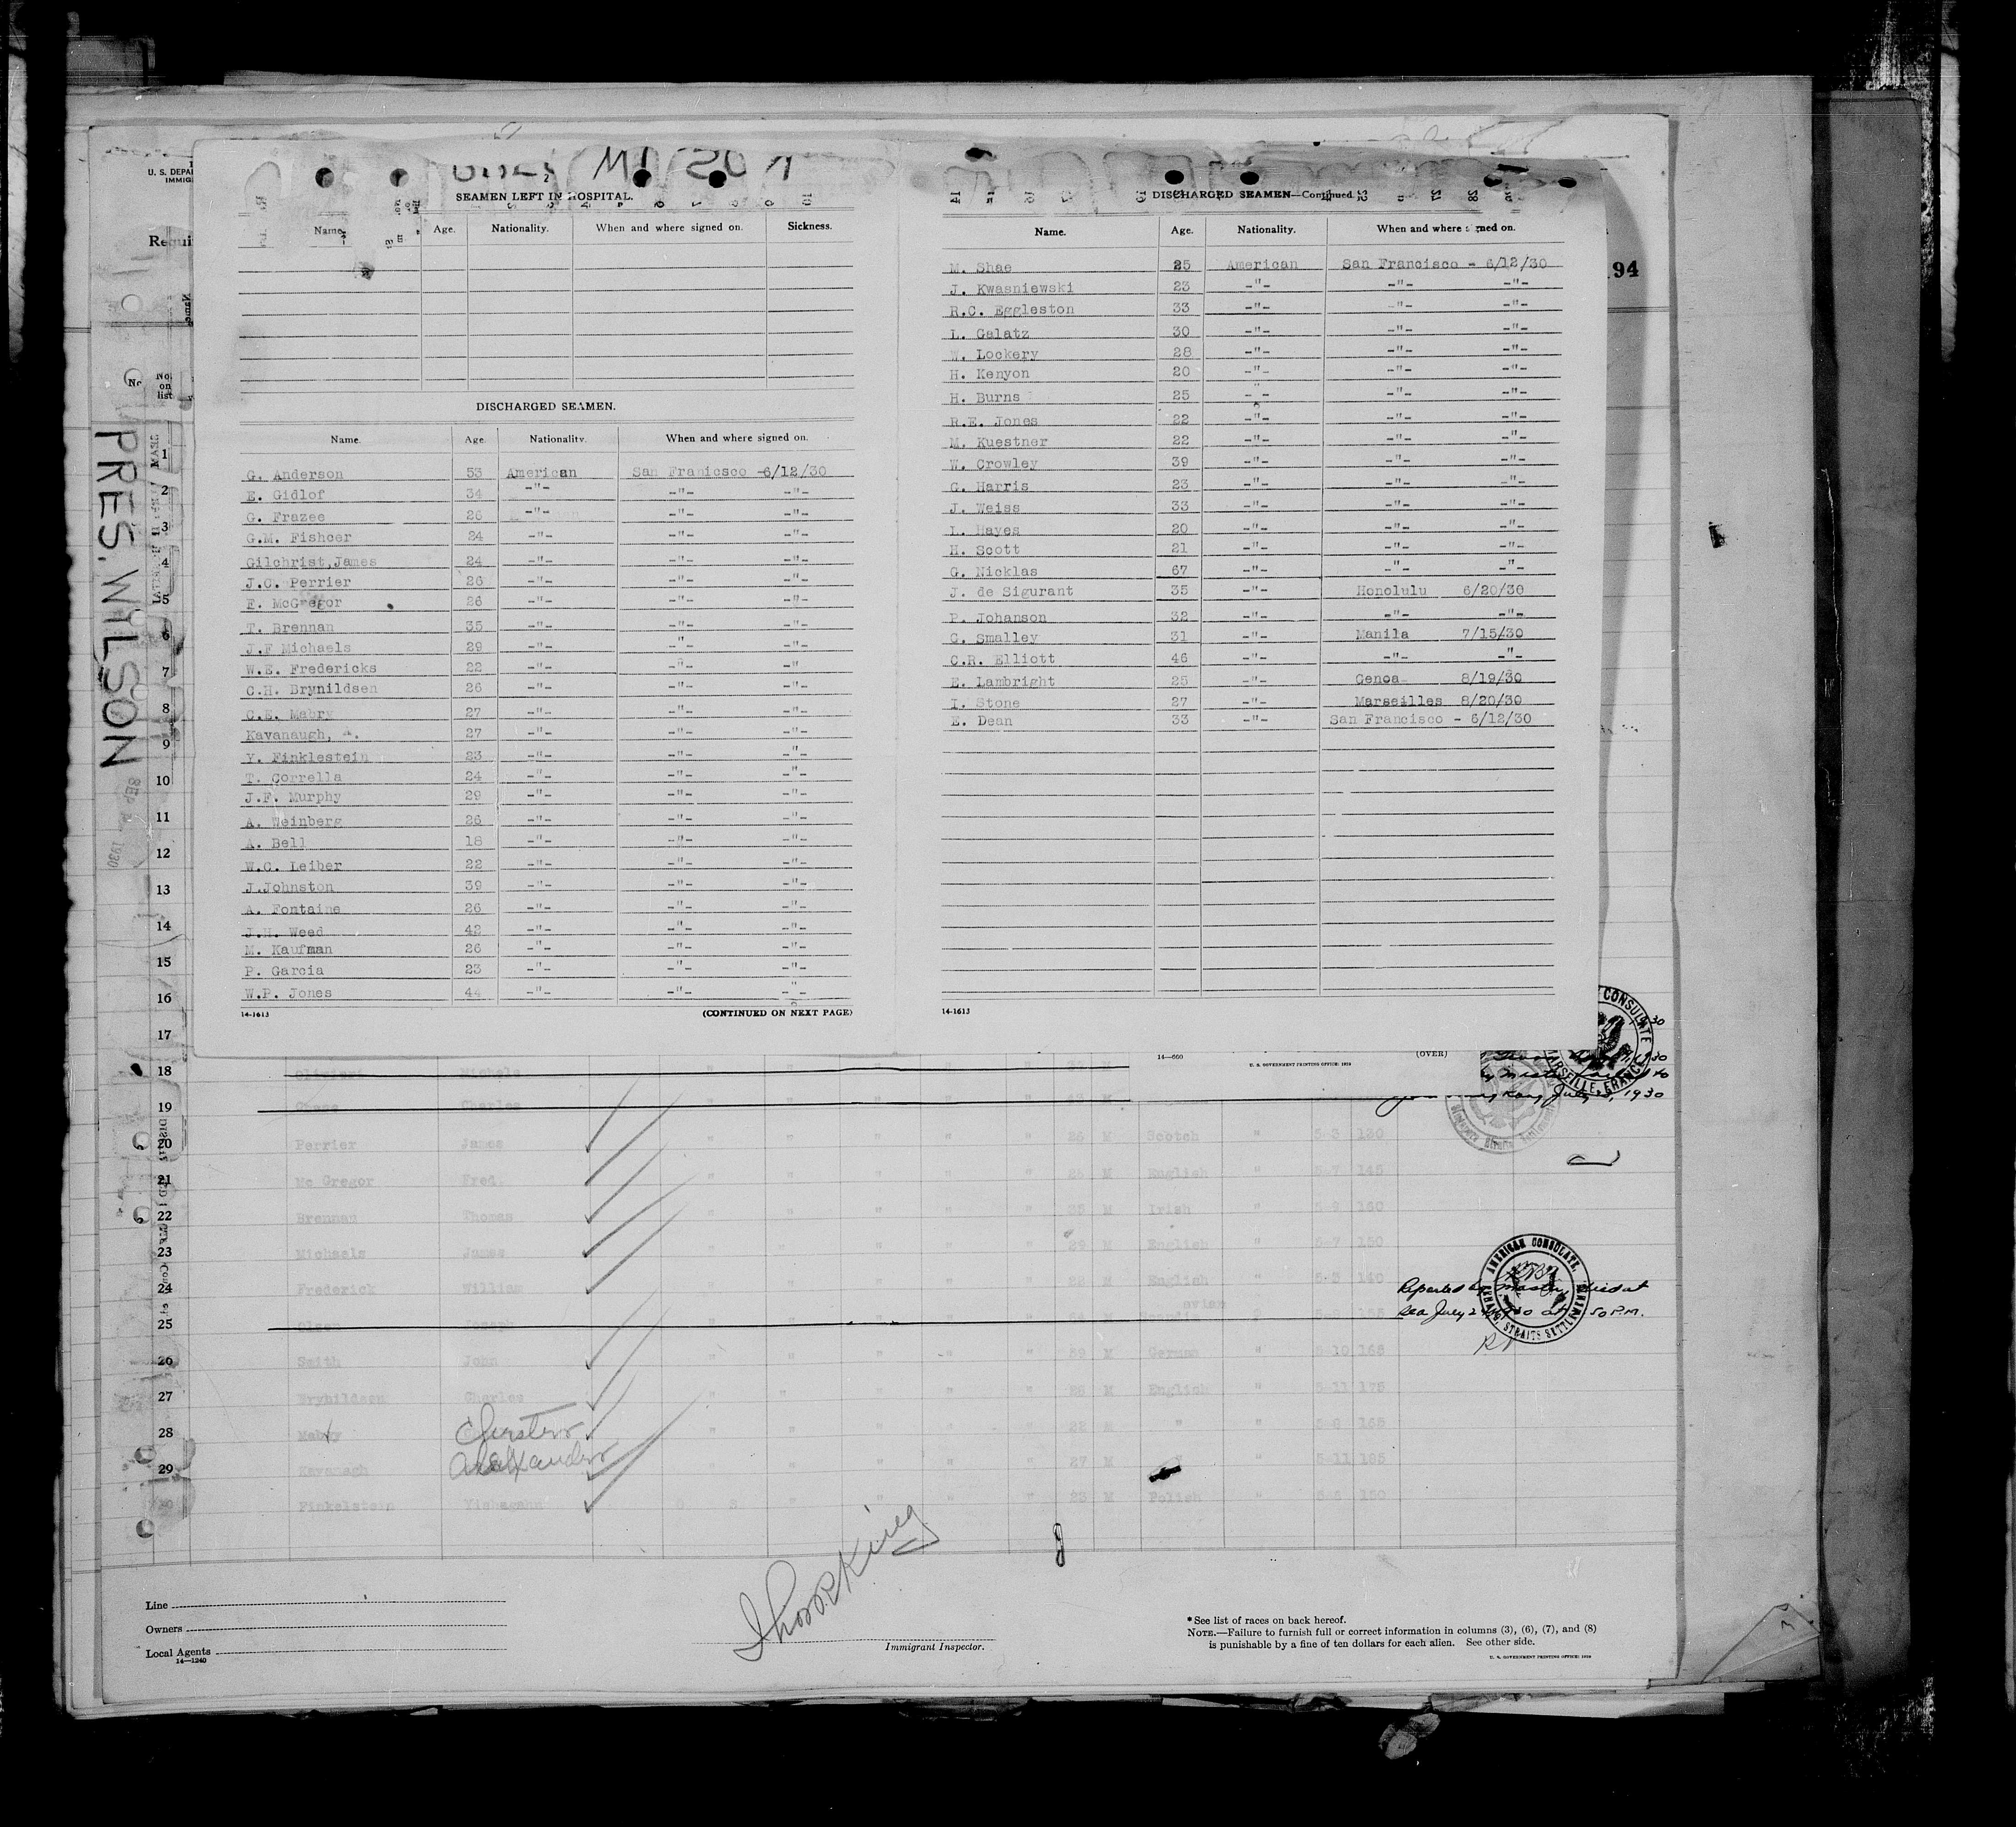 U. S. DEPAR
IMMIG
Requi
94
PRES. WILSON
SEP 1930
WILSON
SEAMEN LEFT IN HOSPITAL.
Name. Age. Nationality. When and where signed on. Sickness.
DISCHARGED SEAMEN.
Name. Age. Nationality. When and where signed on.
G. Anderson 53 American San Franicsco -6/12/30
E. Gidlof 34 -"- -"- -"-
G. Frazee 26 -"- -"-
G.M. Fishcer 24 -"- -"- -"-
Gilchrist,James 24 -"- -"- -"-
J.C. Perrier 26 -"- -"- -"-
F. McGregor 26 -"- -"- -"-
T. Brennan 35 -"- -"- -"-
J.F Michaels 29 -"- " -"-
W.E. Fredericks 22 -"- -"- -"-
C.H. Brynildsen 26 -"- -"- -"-
C.E. Mabry 27 -"- -"- -"-
Kavanaugh, A. 27 -"- -"- -"-
Y. Finklestein 23 -"- -"- -"-
T. Corrella 24 -"- -"- -"-
J.F. Murphy 29 -"- -"- -"-
A. Weinberg 26 -"- -"- -"-
A. Bell 18 -"- -"- -"-
W.C. Leiber 22 -"- -"- -"-
J.Johnston 39 -"- -"- -"-
A. Fontaine 26 -"- -"- -"-
J.H. Weed 42 -"- -"- -"-
M. Kaufman 26 -"- -"- -"-
P. Garcia 23 -"- -"- -"-
W.P. Jones 44 -"- -"- -"-
14-1613 (CONTINUED ON NEXT PAGE)
DISCHARGED SEAMEN—Continued.
Name. Age. Nationality. When and where signed on.
M. Shae 25 American San Francisco - 6/12/30
J. Kwasniewski 23 -"- -"- -"-
R.C. Eggleston 33 -"- -"- -"-
L. Galatz 30 -"- -"- -"-
W. Lockery 28 -"- -"- -"-
H. Kenyon 20 -"- -"- -"-
H. Burns 25 -"- -"- -"-
R.E. Jones 22 -"- -"- -"-
M. Kuestner 22 -"- -"- -"-
W. Crowley 39 -"- -"- -"-
G. Harris 23 -"- -"- -"-
J. Weiss 33 -"- -"- -"-
L. Hayes 20 -"- -"- -"-
H. Scott 21 -"- -"- -"-
G. Nicklas 67 -"- -"- -"-
J. de Sigurant 35 -"- Honolulu 6/20/30
P. Johanson 32 -"- -"- -"-
C. Smalley 31 -"- Manila 7/15/30
C.R. Elliott 46 -"- -"- -"-
E. Lambright 25 -"- Genoa 8/19/30
I. Stone 27 -"- Marseilles 8/20/30
E. Dean 33 -"- San Francisco - 6/12/30
14-1613
No. on list
1
2
3
4
5
6
7
8
9
10
11
12
13
14
15
16
17
14—660 U. S. GOVERNMENT PRINTING OFFICE: 1929 (OVER)
CONSULATE
MARSEILLE, FRANCE
July 23, 1930
18 Olivieri Michele " " " " " M
19 Chase Charles " " " " " M
20 Perrier James " " " " " 26 M Scotch " 5-3 130
21 Mc Gregor Fred. " " " " " 25 M English " 5-7 145
22 Brennan Thomas " " " " " 35 M Irish " 5-9 160
23 Michaels James " " " " " 29 M English " 5-7 150
24 Frederick William " " " " " 22 M English " 5-5 140
25 Olsen Joseph " " " " " M
Reported by Master, died at
sea July 2 50 P.M.
AMERICAN CONSULATE,
PENANG, STRAITS SETTLEMENTS
26 Smith John " " " " " 39 M German " 5-10 168
27 Brynildsen Charles " " " " " 26 M English " 5-11 175
28 Mabry Chester " " " " " 22 M " " 5-8 165
29 Kavanagh Alexander " " " " " 27 M " 5-11 185
Finkelstein Yichagahn U. S. " " " 23 M Polish " 5-8 150
Line
Owners
Local Agents
14—1240
Immigrant Inspector.
* See list of races on back hereof.
NOTE.—Failure to furnish full or correct information in columns (3), (6), (7), and (8)
is punishable by a fine of ten dollars for each alien. See other side.
U. S. GOVERNMENT PRINTING OFFICE: 1929